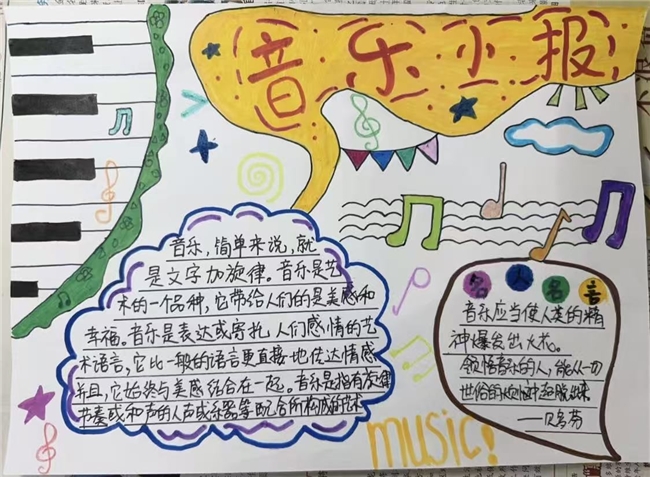 音乐小报
音乐,简单来说,就
是文字加旋律。音乐是艺
术的一个品种,它带给人们的是美感和
幸福。音乐是表达或寄托人们感情的艺
术语言,它比一般的语言更直接地传达情感
并且,它始终与美感结合在一起。音乐是指有旋律
节奏或和声的人声或乐器等配合所构成的艺术
名人名言
音乐应当使人类的精
神爆发出火花。
领悟音乐的人,能从一切
世俗的烦恼中超脱出来
——贝多芬
music!